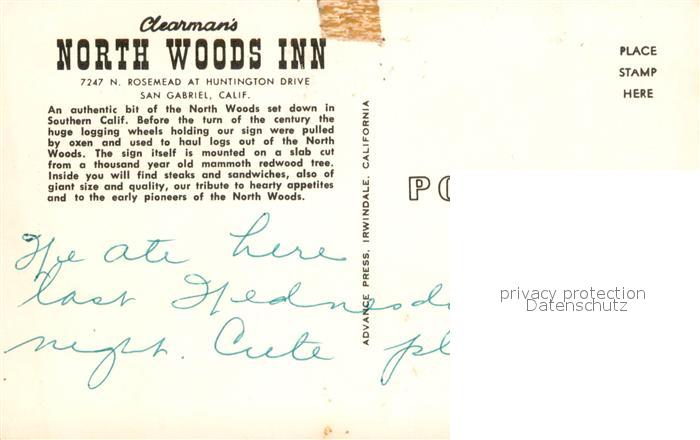 Clearman's
NORTH WOODS INN
7247 N. ROSEMEAD AT HUNTINGTON DRIVE
SAN GABRIEL, CALIF.
An authentic bit of the North Woods set down in
Southern Calif. Before the turn of the century the
huge logging wheels holding our sign were pulled
by oxen and used to haul logs out of the North
Woods. The sign itself is mounted on a slab cut
from a thousand year old mammoth redwood tree.
Inside you will find steaks and sandwiches, also of
giant size and quality, our tribute to hearty appetites
and to the early pioneers of the North Woods.
We ate here
last Wednesd
night. Cute pl
ADVANCE PRESS, IRWINDALE, CALIFORNIA
PLACE
STAMP
HERE
PO
privacy protection
Datenschutz